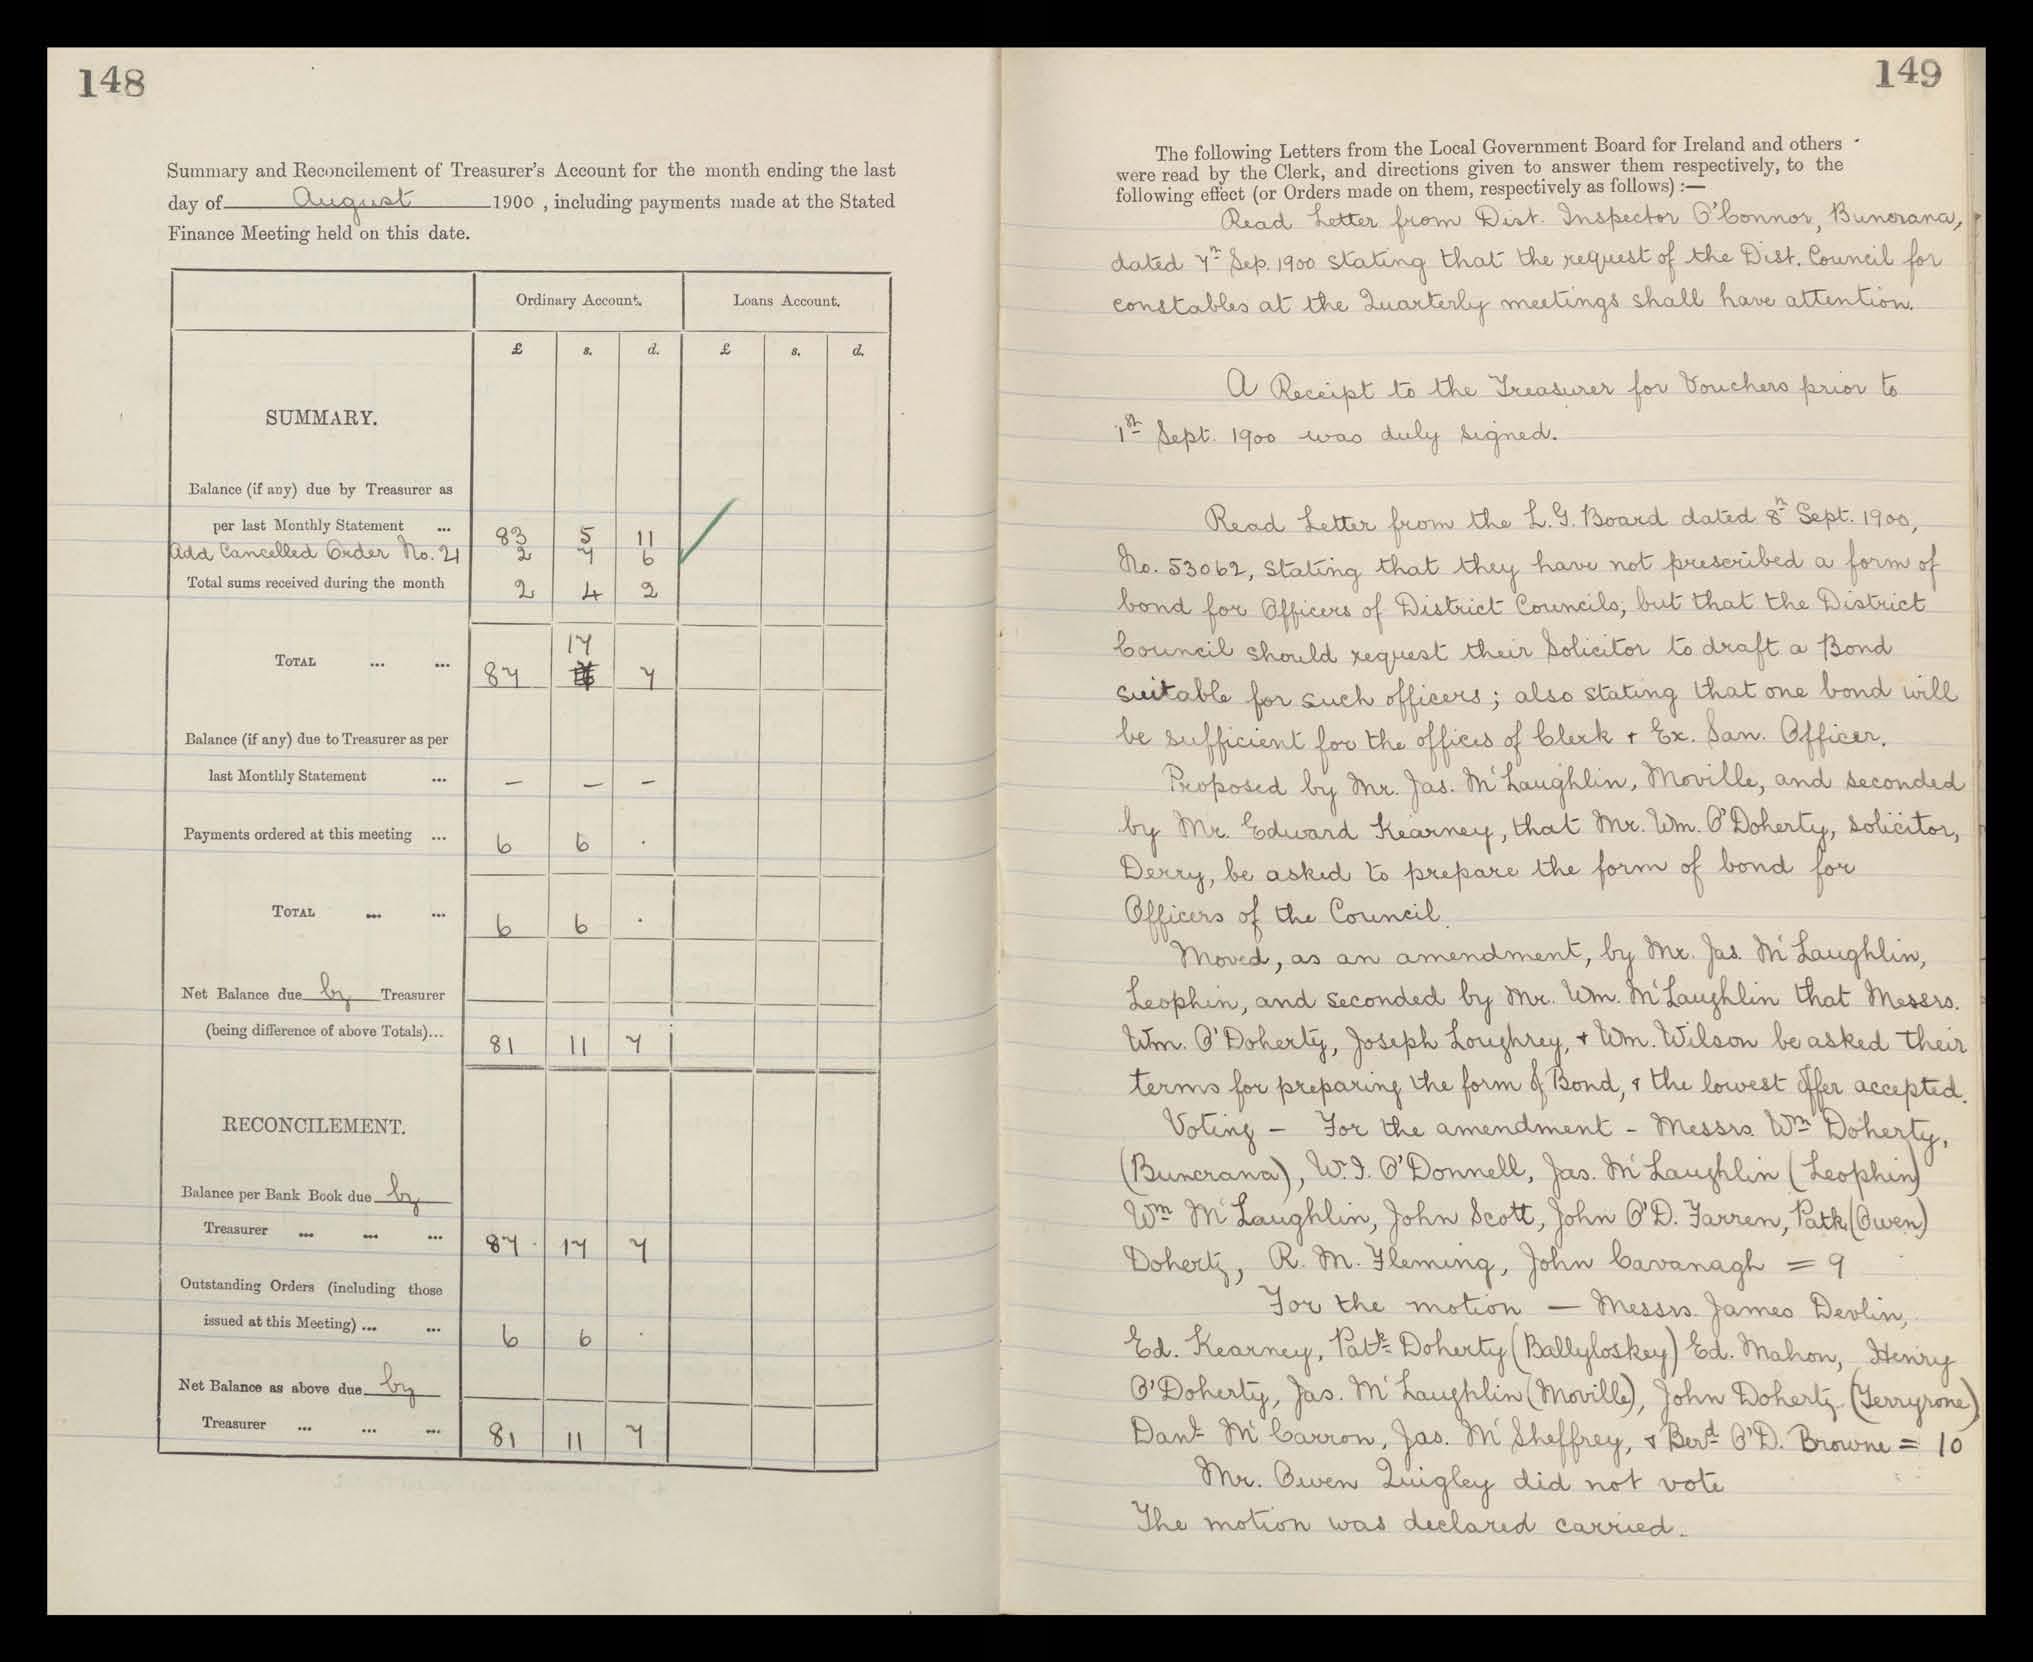 148
Summary and Reconcilement of Treasurer's Account for the month ending the last
day of August 1900 , including payments made at the Stated
Finance Meeting held on this date.
Ordinary Account. Loans Account.
£ s. d. £ s. d.
SUMMARY.
Balance (if any) due by Treasurer as
per last Monthly Statement ... 83 5 11
Add Cancelled Order No. 21 2 7 6
Total sums received during the month 2 4 2
17
TOTAL ... ... 87 7
Balance (if any) due to Treasurer as per
last Monthly Statement ... — — —
Payments ordered at this meeting ... 6 6 .
TOTAL ... ... 6 6 .
Net Balance due by Treasurer
(being difference of above Totals)... 81 11 7
RECONCILEMENT.
Balance per Bank Book due by
Treasurer ... ... ... 87 17 7
Outstanding Orders (including those
issued at this Meeting) ... ... 6 6 .
Net Balance as above due by
Treasurer ... ... ... 81 11 7
149
The following Letters from the Local Government Board for Ireland and others
were read by the Clerk, and directions given to answer them respectively, to the
following effect (or Orders made on them, respectively as follows) :—
Read Letter from Dist. Inspector O'Connor, Buncrana,
dated 7th Sep. 1900 stating that the request of the Dist. Council for
constables at the Quarterly meetings shall have attention.
A Receipt to the Treasurer for Vouchers prior to
1st Sept. 1900 was duly signed.
Read Letter from the L.G. Board dated 8th Sept. 1900,
No. 53062, stating that they have not prescribed a form of
bond for Officers of District Councils; but that the District
Council should request their Solicitor to draft a Bond
suitable for such officers; also stating that one bond will
be sufficient for the offices of Clerk + Ex. San. Officer.
Proposed by Mr. Jas. McLaughlin, Moville, and seconded
by Mr. Edward Kearney, that Mr. Wm. O'Doherty, Solicitor,
Derry, be asked to prepare the form of bond for
Officers of the Council.
Moved, as an amendment, by Mr. Jas. McLaughlin,
Leophin, and seconded by Mr. Wm. McLaughlin that Messrs.
Wm. O'Doherty, Joseph Loughrey, + Wm. Wilson be asked their
terms for preparing the form of Bond, + the lowest offer accepted.
Voting — For the amendment — Messrs. Wm Doherty,
(Buncrana), W.J. O'Donnell, Jas. McLaughlin (Leophin)
Wm McLaughlin, John Scott, John O'D. Farren, Patk (Owen)
Doherty, R. M. Fleming, John Cavanagh = 9
For the motion — Messrs. James Devlin,
Ed. Kearney, Patk Doherty (Ballyloskey) Ed. Mahon, Henry
O'Doherty, Jas. McLaughlin (Moville), John Doherty (Terryrone)
Danl McCarron, Jas. McSheffrey, + Berd O'D. Browne = 10
Mr. Owen Quigley did not vote
The motion was declared carried.